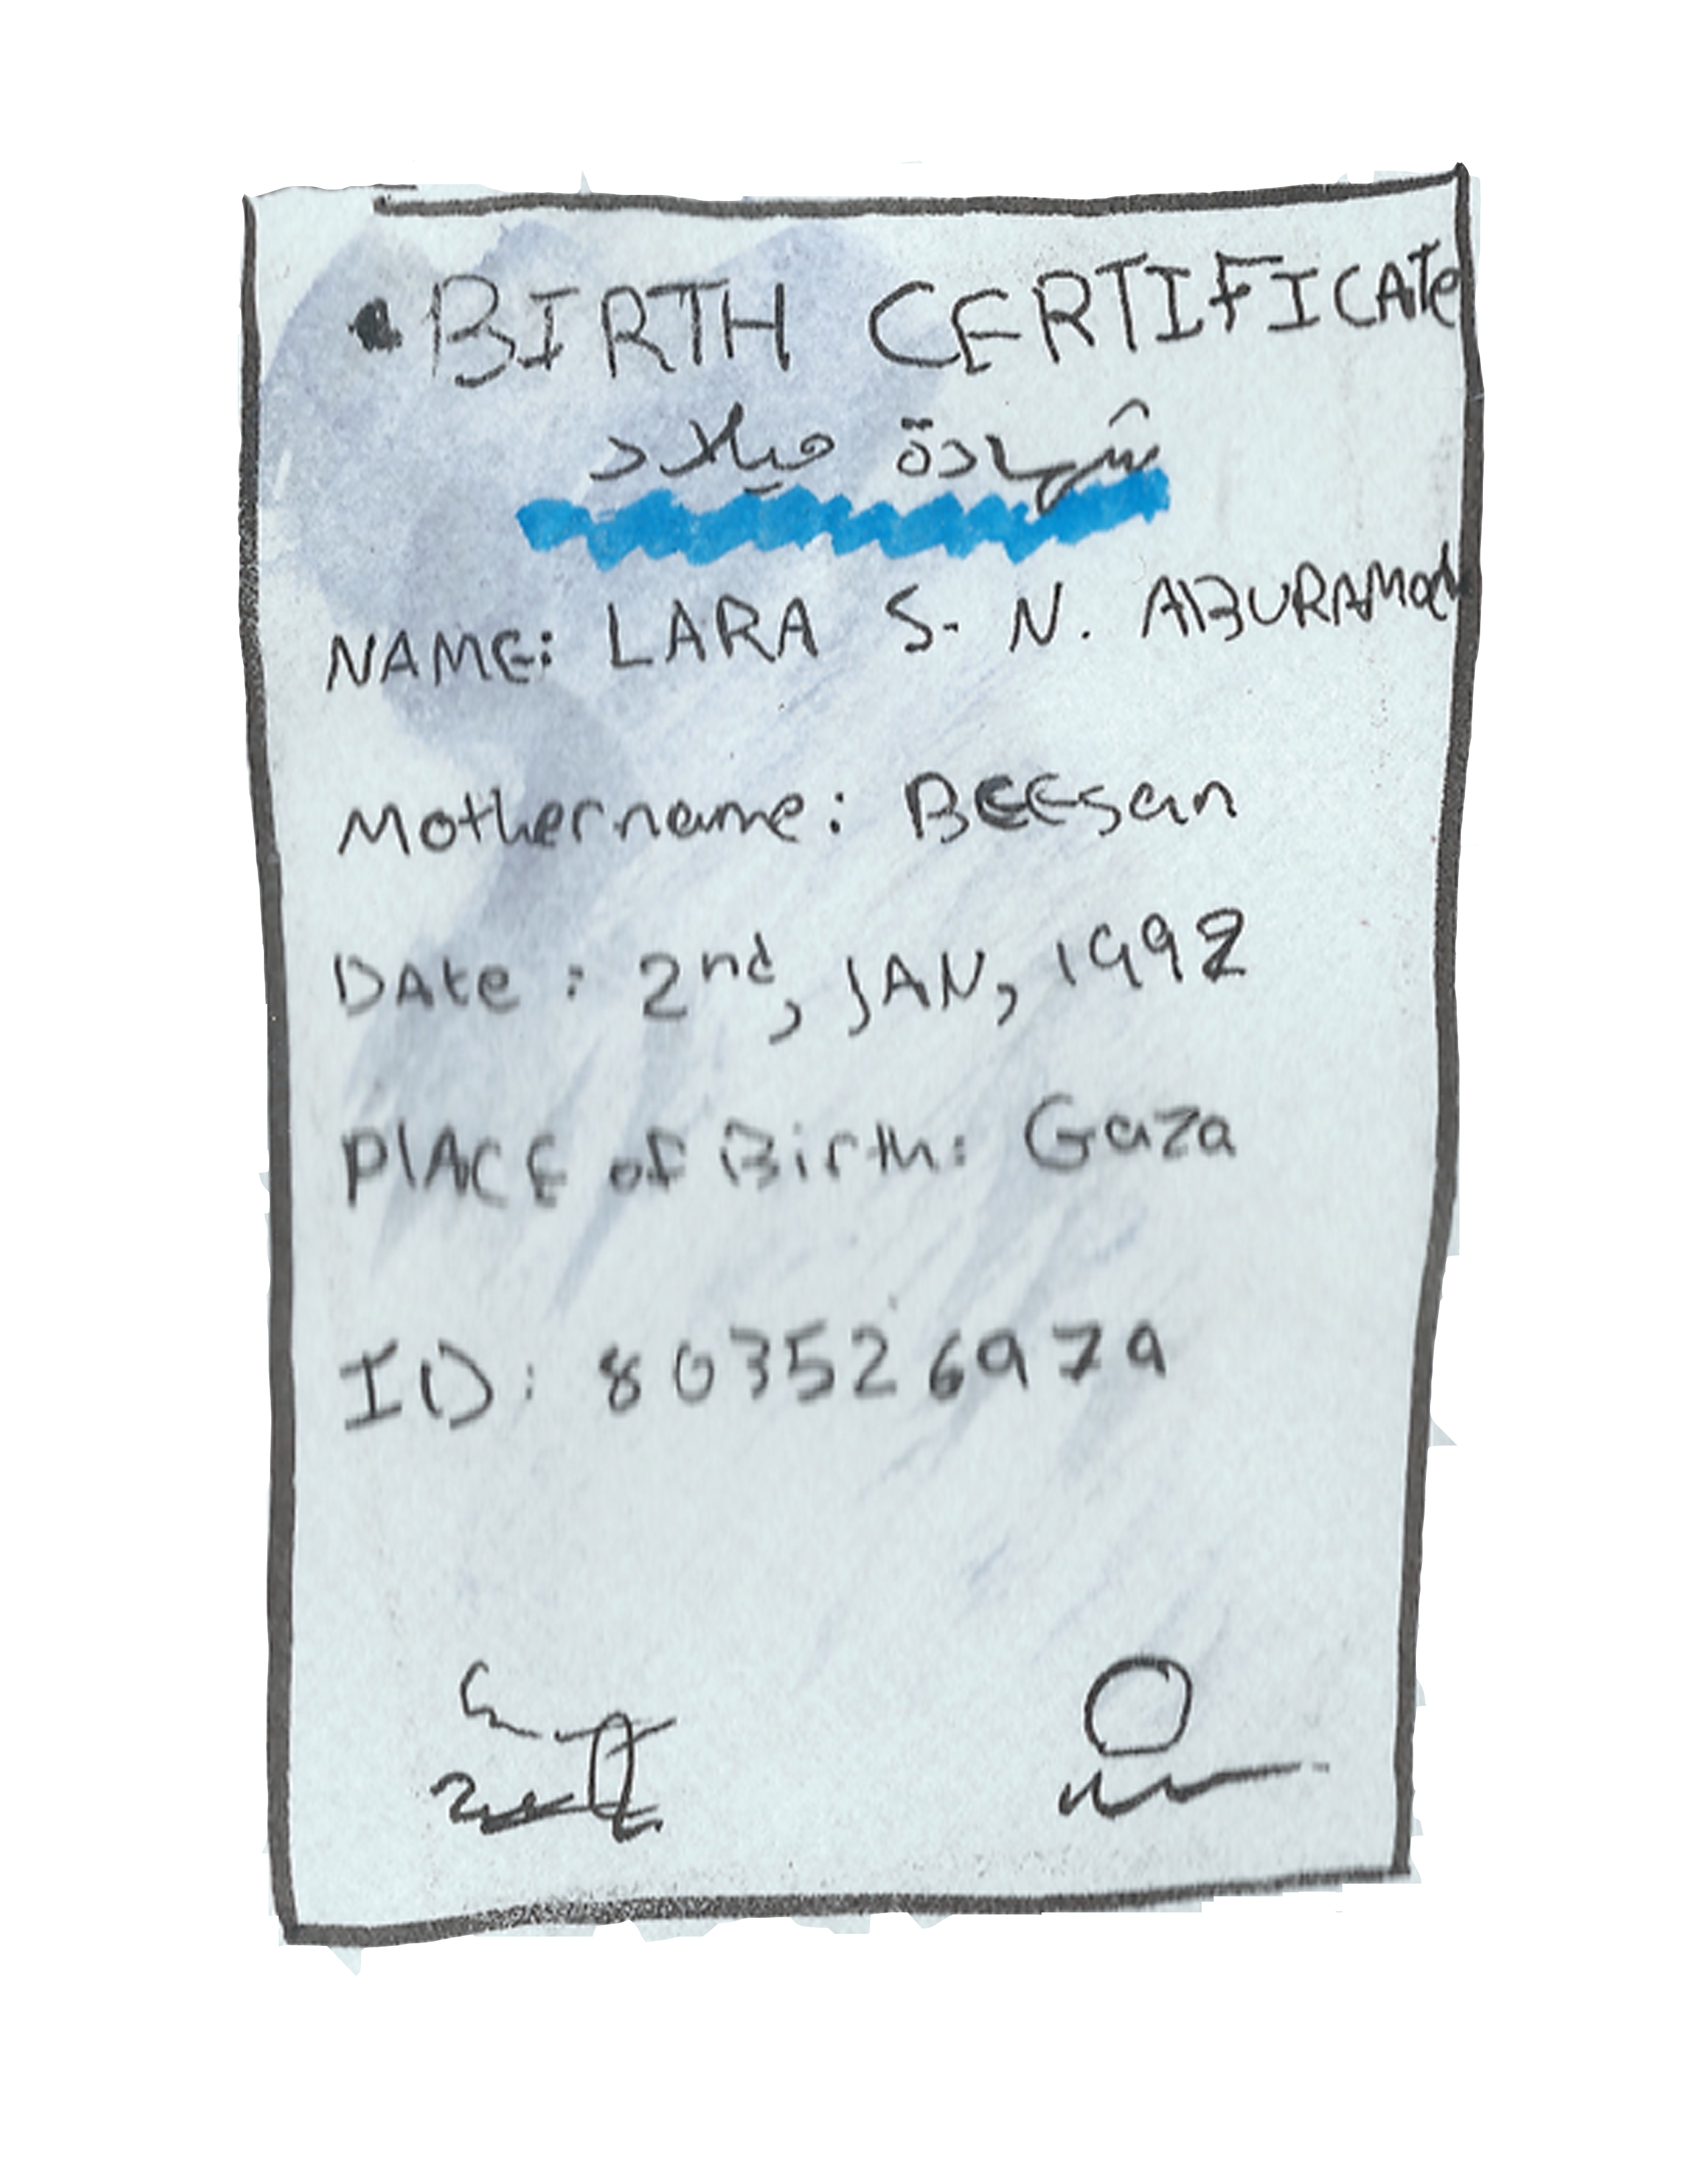 BIRTH CERTIFICATE
شهادة ميلاد
NAME: LARA S. N. ABURAMAd
Mothername: BEEsan
DAte: 2nd, JAN, 1992
PlACE of Birth: Gaza
ID: 803526979